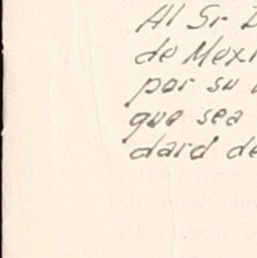 Al Sr
de Mexi
por su
que sea
dard de